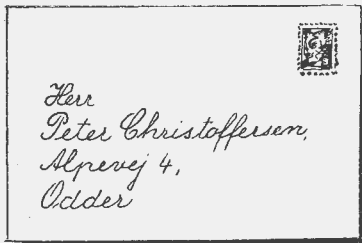 Herr
Peter Christoffersen,
Alpevej 4,
Odder